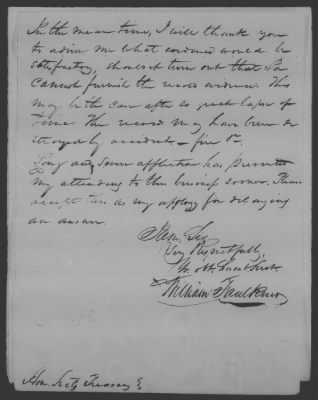 In the mean time, I will thank you
to advise me what evidence would be
satisfactory, should it turn out that Va
cannot furnish the record evidence. This
may be the case after so great lapse of
time. The record may have been de
stroyed by accidents – fire &c.
Long and severe affliction has prevented
my attending to this business sooner. Please
accept this as my apology for delaying
an answer.
I am Sir
Very Respectfully,
Yr obt. Servt
William Faulkner
Hon. Secty Treasury